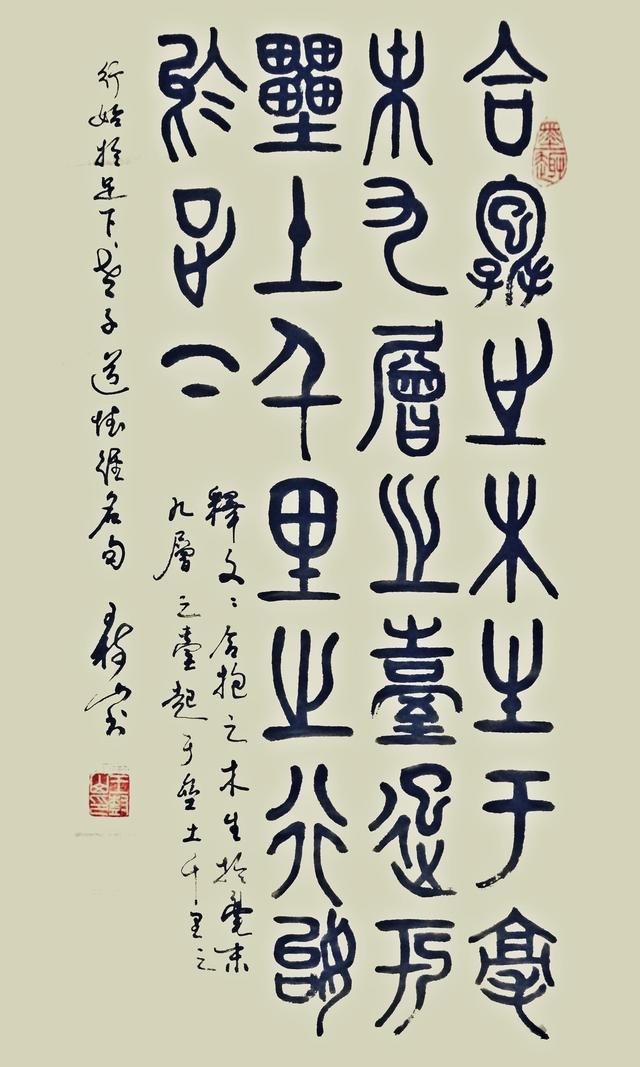 合抱之木生于毫
末九層之臺起于
壘土千里之行始
於足下
釋文：合抱之木生於毫末
九層之臺起于壘土千里之
行始於足下、老子道德經名句